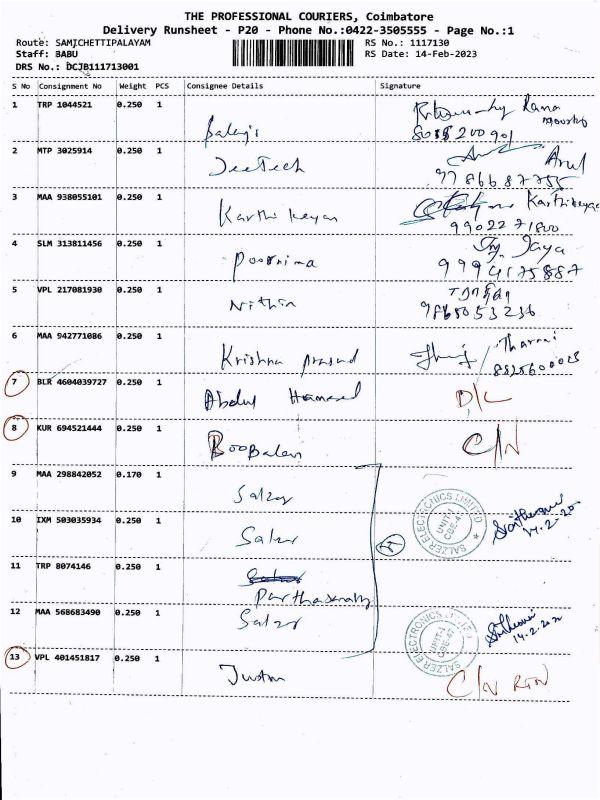 THE PROFESSIONAL COURIERS, Coimbatore
Delivery Runsheet - P20 - Phone No.:0422-3505555 - Page No.:1
Route: SAMICHETTIPALAYAM RS No.: 1117130
Staff: BABU RS Date: 14-Feb-2023
DRS No.: DCJB111713001
S No Consignment No Weight PCS Consignee Details Signature
1 TRP 1044521 0.250 1 Balaji
2 MTP 3025914 0.250 1 JeeTech Arul
9786687755
3 MAA 938055101 0.250 1 Karthikeyan Karthikeyan
9902271800
4 SLM 313811456 0.250 1 Poornima Jaya
9994175887
5 VPL 217081930 0.250 1 Nithin
9865053236
6 MAA 942771086 0.250 1 Krishna Prasad Tharani
8525600023
7 BLR 4604039727 0.250 1 Abdul D/L
8 KUR 694521444 0.250 1 BooBalan C/N
9 MAA 298842052 0.170 1 Salzer
SALZER ELECTRONICS LIMITED UNIT-1 CBE-47
14-2-20
10 IXM 503035934 0.250 1 Salzer
11 TRP 8074146 0.250 1
Parthasarathy
12 MAA 568683490 0.250 1 Salzer
SALZER ELECTRONICS LIMITED UNIT-1 CBE-47
14-2-20
13 VPL 401451817 0.250 1 Justin C/N RTN